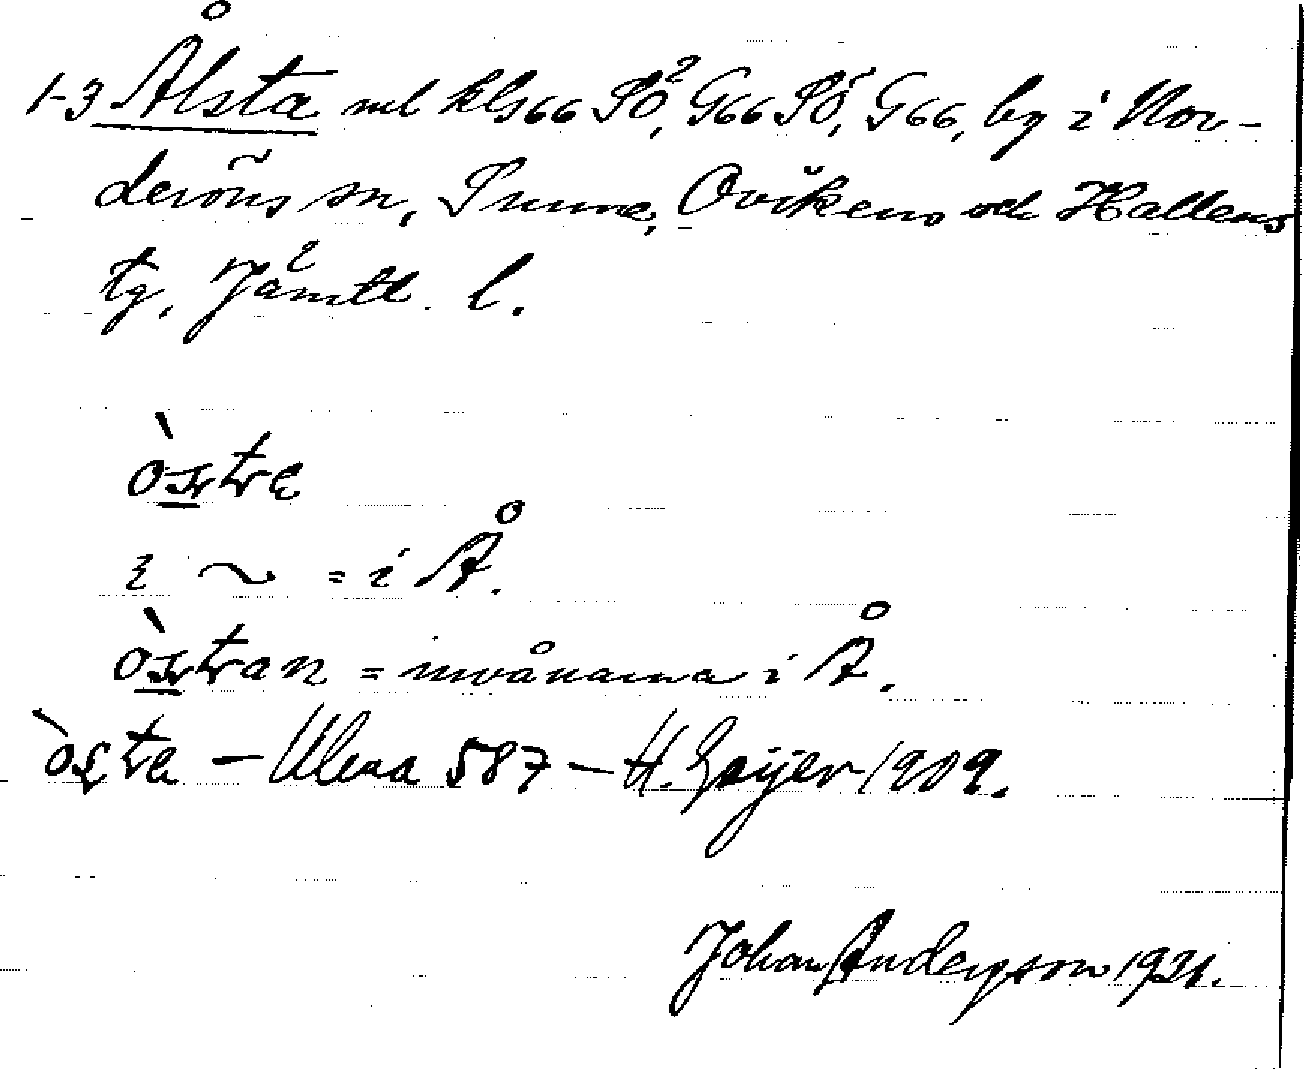 1-3 Ålsta ml kbl 66 SÖ, G66 SÖ, G66, by i Nor-
deröns sn, Sunne, Ovikens och Hallens
tg, Jämtl. l.
òstrɐ
i ~ = i Å.
òstran = invånarna i Å.
òsta – Ulena 587 – H. Geijer 1909.
Johan Anderson 1931.